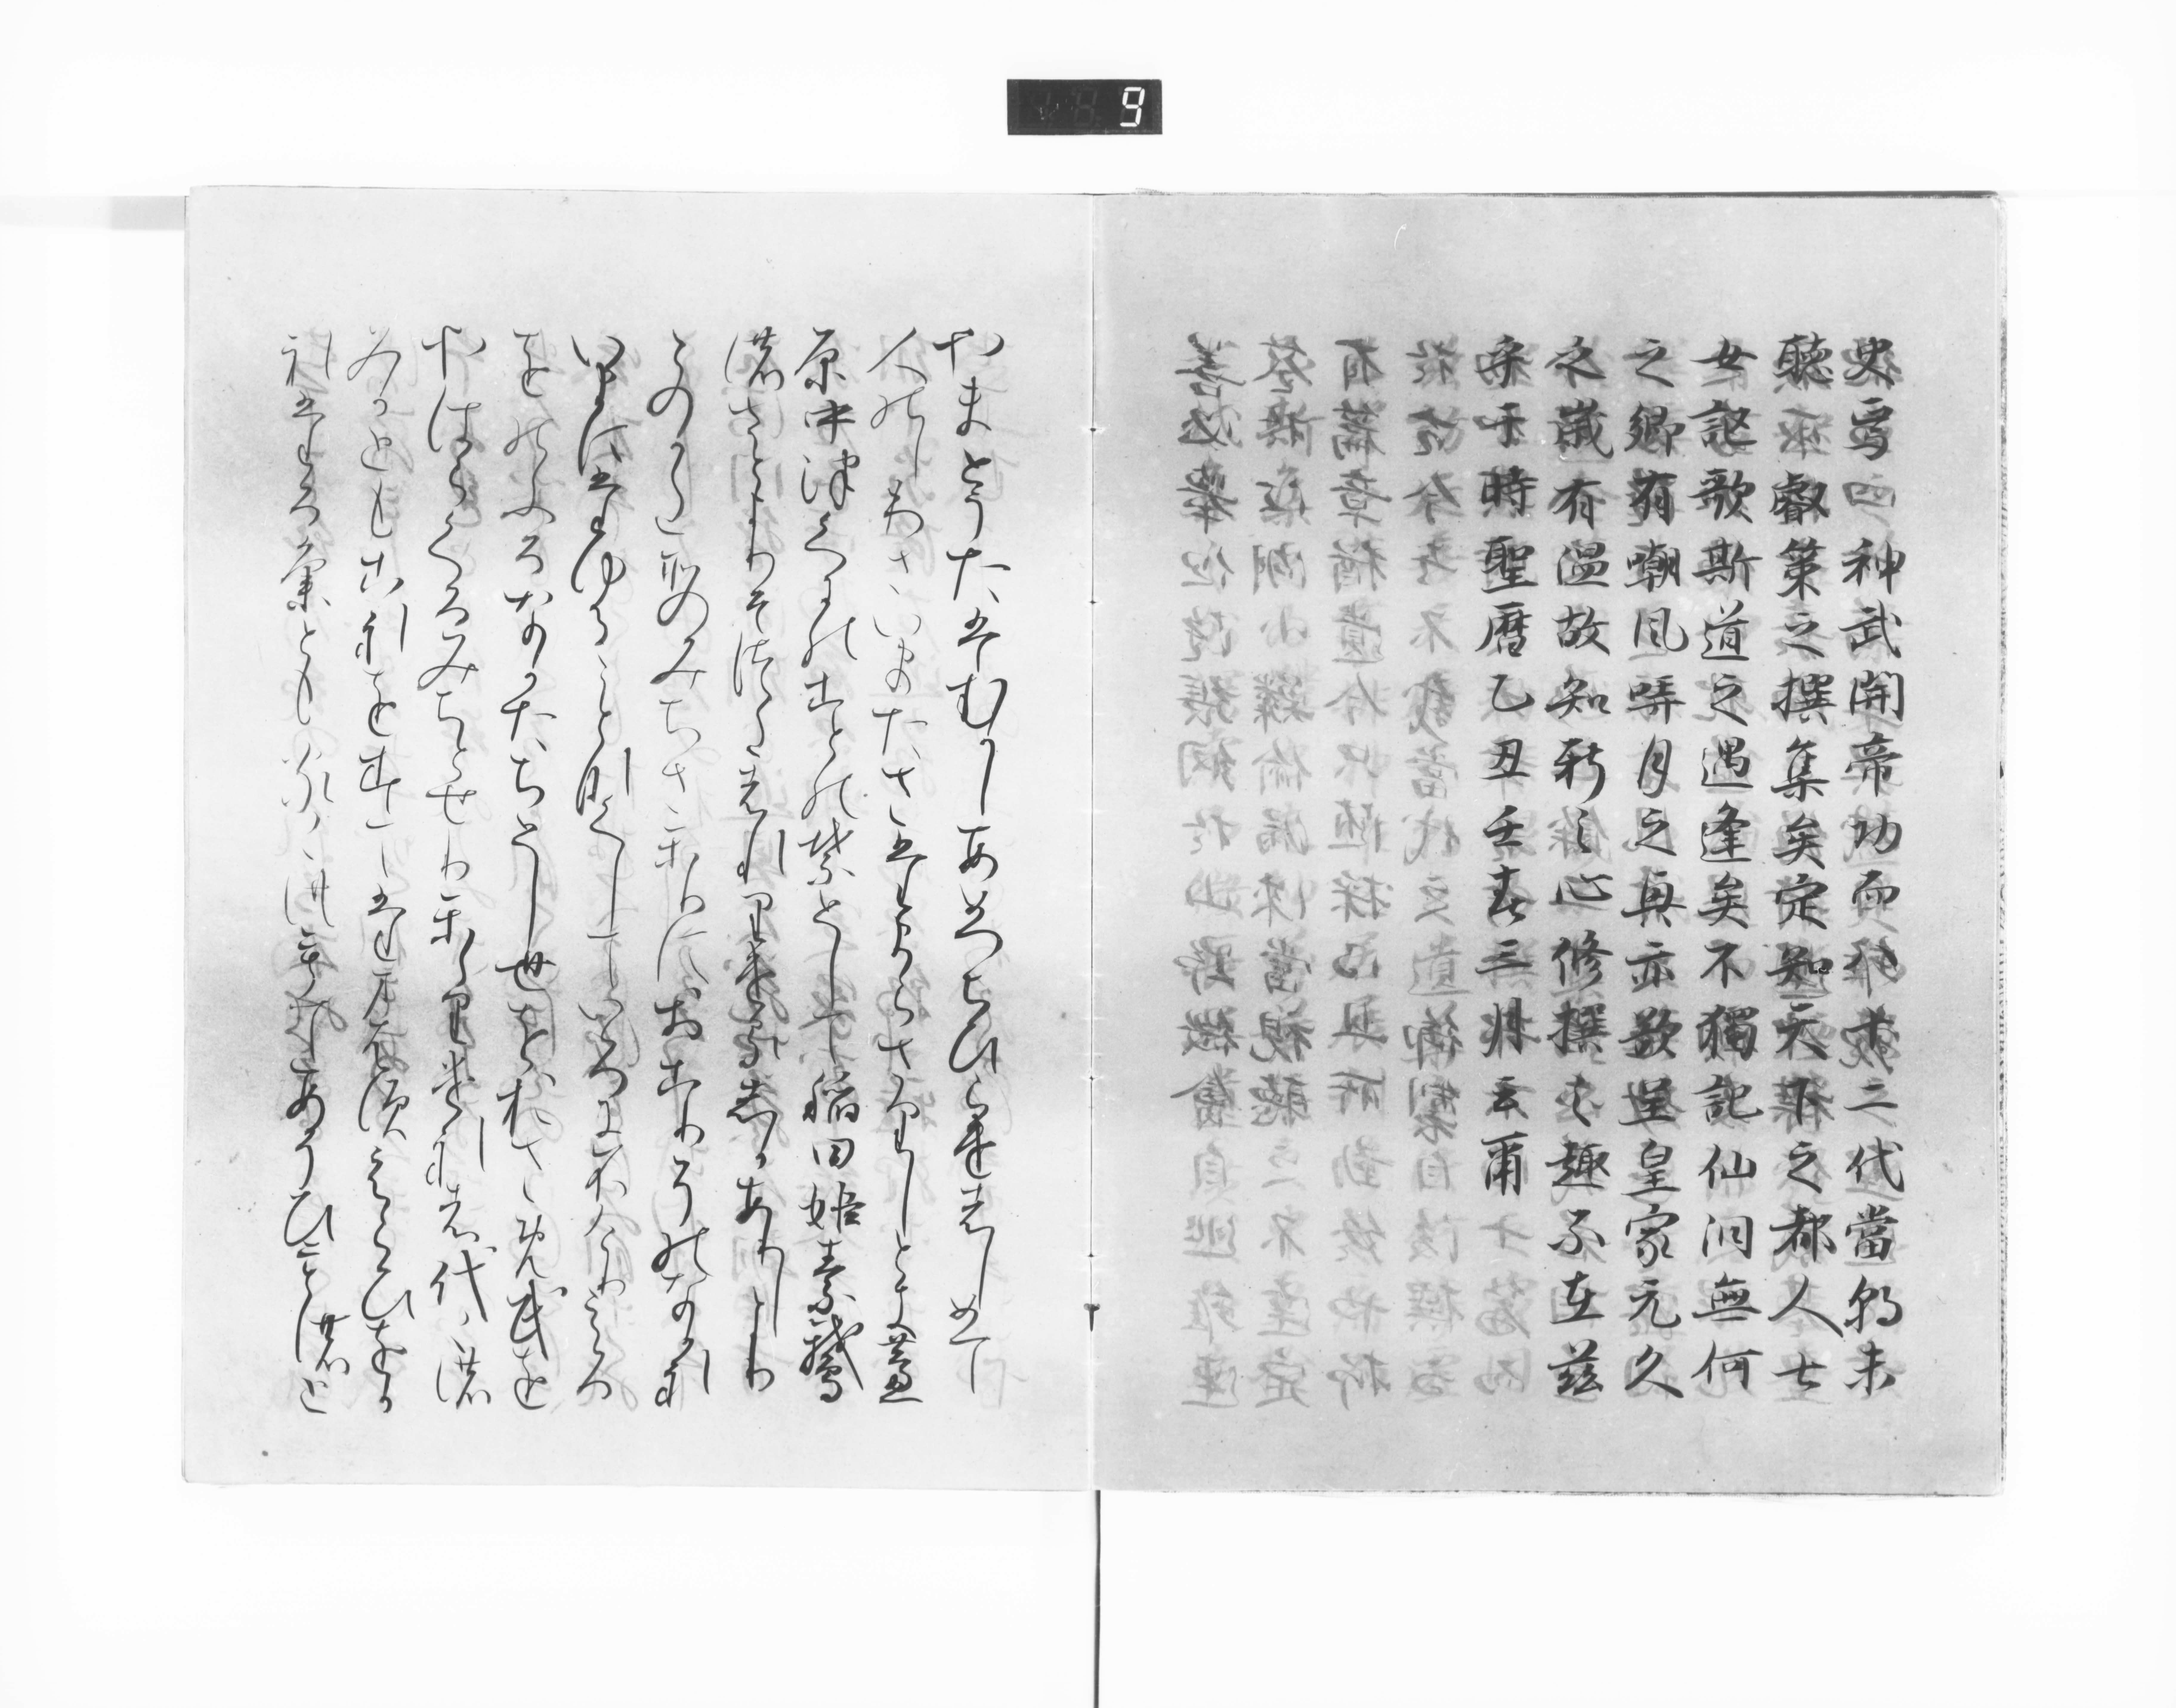 9
史焉神武開帝功而八十二代當朝未
聽叡策之撰集矣定知天下之都人士
女謳歌斯道之遇逢矣不獨記仙洞無何
之郷有嘲風哢月之興亦欲呈皇家元久
之歳有温故知新之心修撰之趣不在茲
乎于時聖暦乙丑王春三月云爾
やまとうたはむかしあめつちひらけはしめて
人のしわさいまたさたまらさりしとき葦
原中津くにのことの葉として稲田姫素鵞
のさとよりそつたはれりけるしかありしより
このかたそのみちさかりにおこりそのなかれ
いまにたゆることなくしていろにふけりこゝろ
をのふるなかたちとし世をおさめ民を
やはらくるみちとせりかゝりけれは代々の
みかともこれをすてたまはすえらひをか
れたる集ともいへ々のもてあそひものと